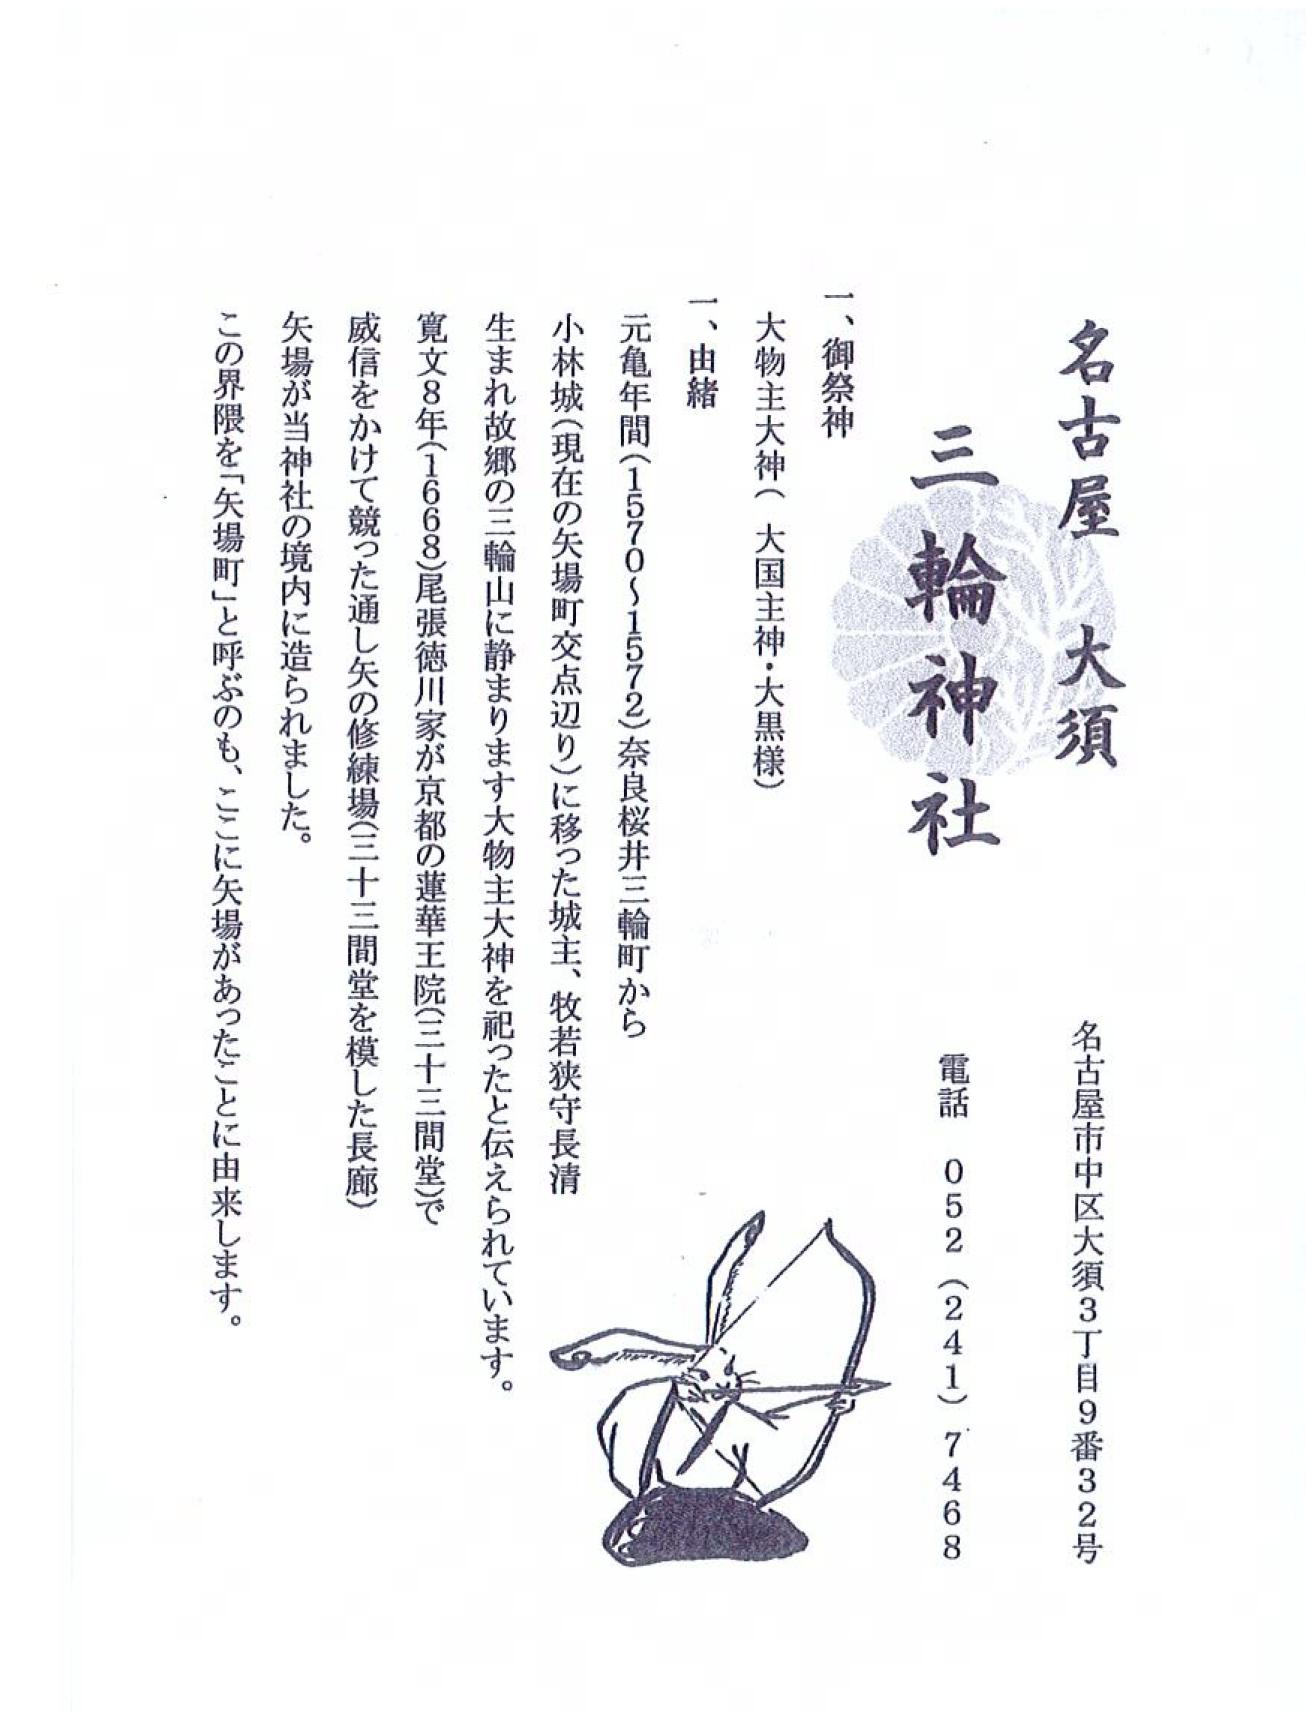 名古屋 大須
三輪神社
名古屋市中区大須3丁目9番32号
電話 052(241)7468
一、御祭神
大物主大神( 大国主神・大黒様)
一、由緒
元亀年間(1570~1572)奈良桜井三輪町から
小林城(現在の矢場町交点辺り)に移った城主、牧若狭守長清
生まれ故郷の三輪山に静まります大物主大神を祀ったと伝えられています。
寛文8年(1668)尾張徳川家が京都の蓮華王院(三十三間堂)で
威信をかけて競った通し矢の修練場(三十三間堂を模した長廊)
矢場が当神社の境内に造られました。
この界隈を「矢場町」と呼ぶのも、ここに矢場があったことに由来します。